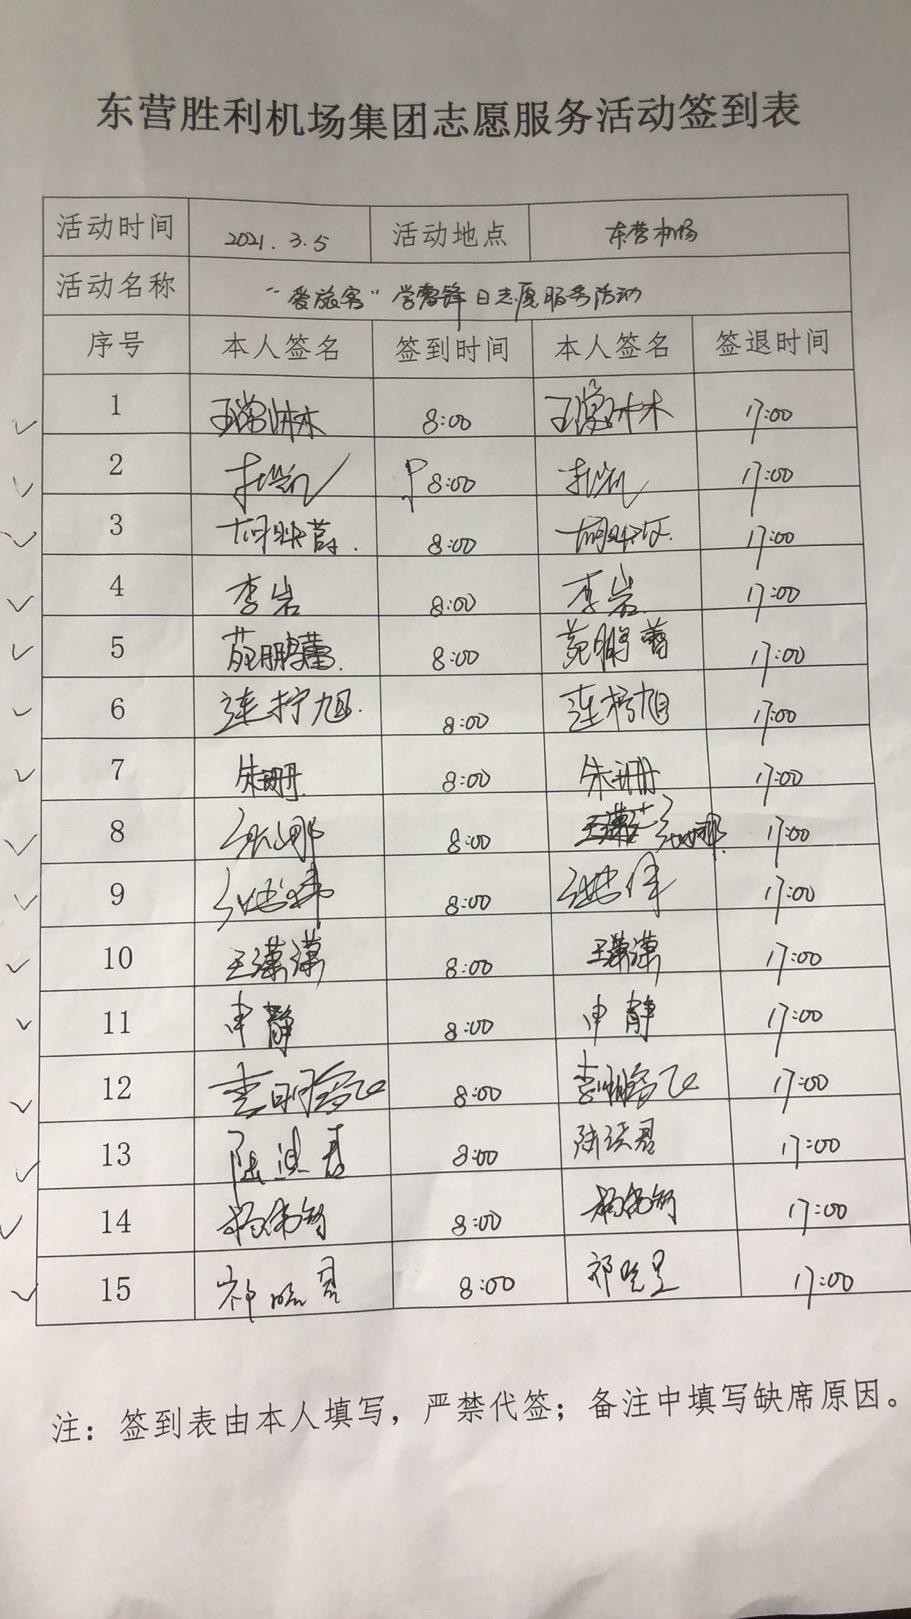 东营胜利机场集团志愿服务活动签到表
活动时间 2021.3.5 活动地点 东营机场
活动名称 “爱旅客”学雷锋日志愿服务活动
序号 本人签名 签到时间 本人签名 签退时间
1 8:00 17:00
2 8:00 17:00
3 8:00 17:00
4 李岩 8:00 李岩 17:00
5 苑鹏蕾 8:00 苑鹏蕾 17:00
6 8:00 17:00
7 朱珊 8:00 朱珊 17:00
8 张娜 8:00 张娜 17:00
9 8:00 17:00
10 王潇潇 8:00 王潇潇 17:00
11 申静 8:00 申静 17:00
12 8:00 17:00
13 8:00 17:00
14 8:00 17:00
15 8:00 17:00
注：签到表由本人填写，严禁代签；备注中填写缺席原因。